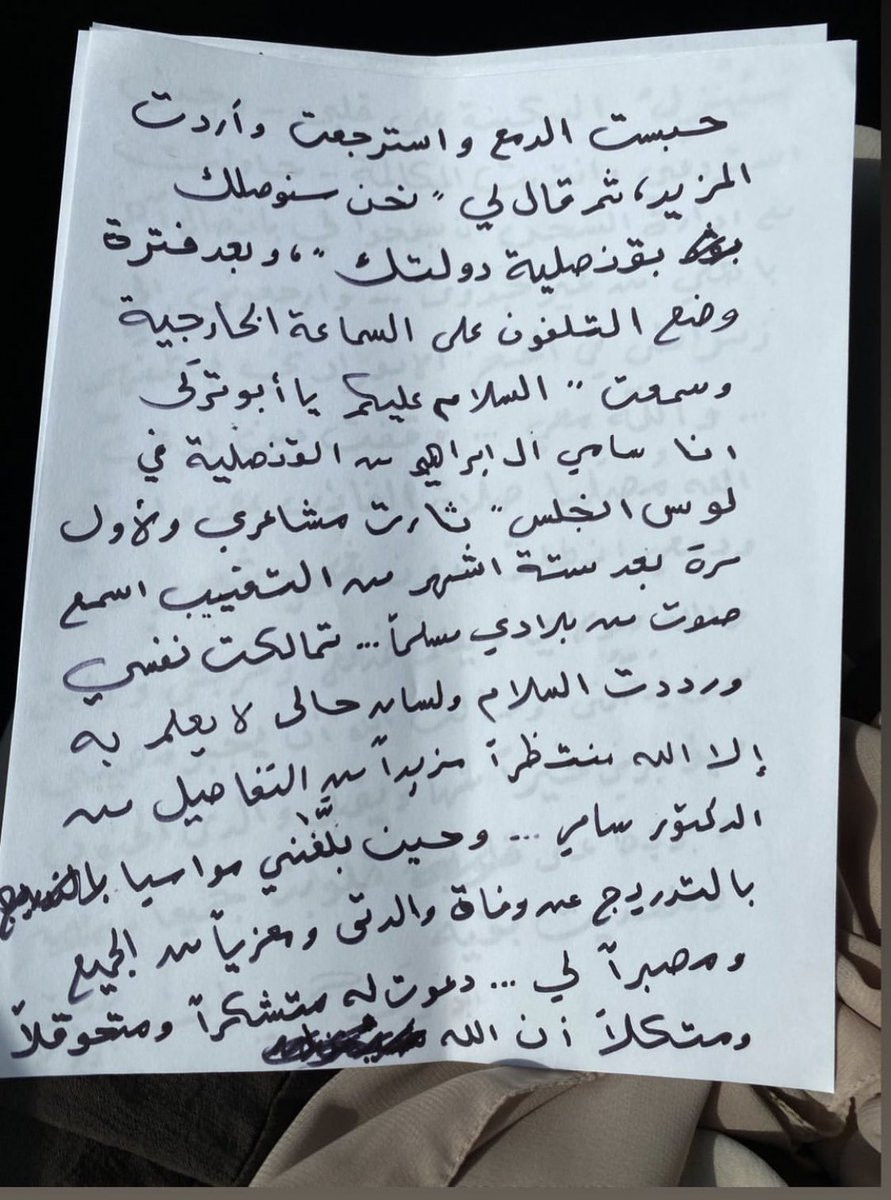 حبست الدمع واسترجعت وأردت
المزيد، ثم قال لي "نحن سنوصلك
بقونصلية دولتك"، وبعد فترة
وضع التلفون على السماعة الخارجية
وسمعت "السلام عليكم يا أبو تركي
انا سامي ال ابراهيم من القونصلية في
لوس انجلس" ثارت مشاعري ولأول
مرة بعد ستة اشهر من التغييب اسمع
صوت من بلادي مسلماً... تمالكت نفسي
ورددت السلام ولسان حالى لا يعلم به
إلا الله منتظراً مزيداً من التفاصيل من
الدكتور سامي ... وحين بلّغني مواسيا
بالتدريج عن وفاة والدتى ومعزياً من الجميع
ومصبراً لي ... دعوت له متشكراً ومتحوقلاً
ومتكلاً أن الله